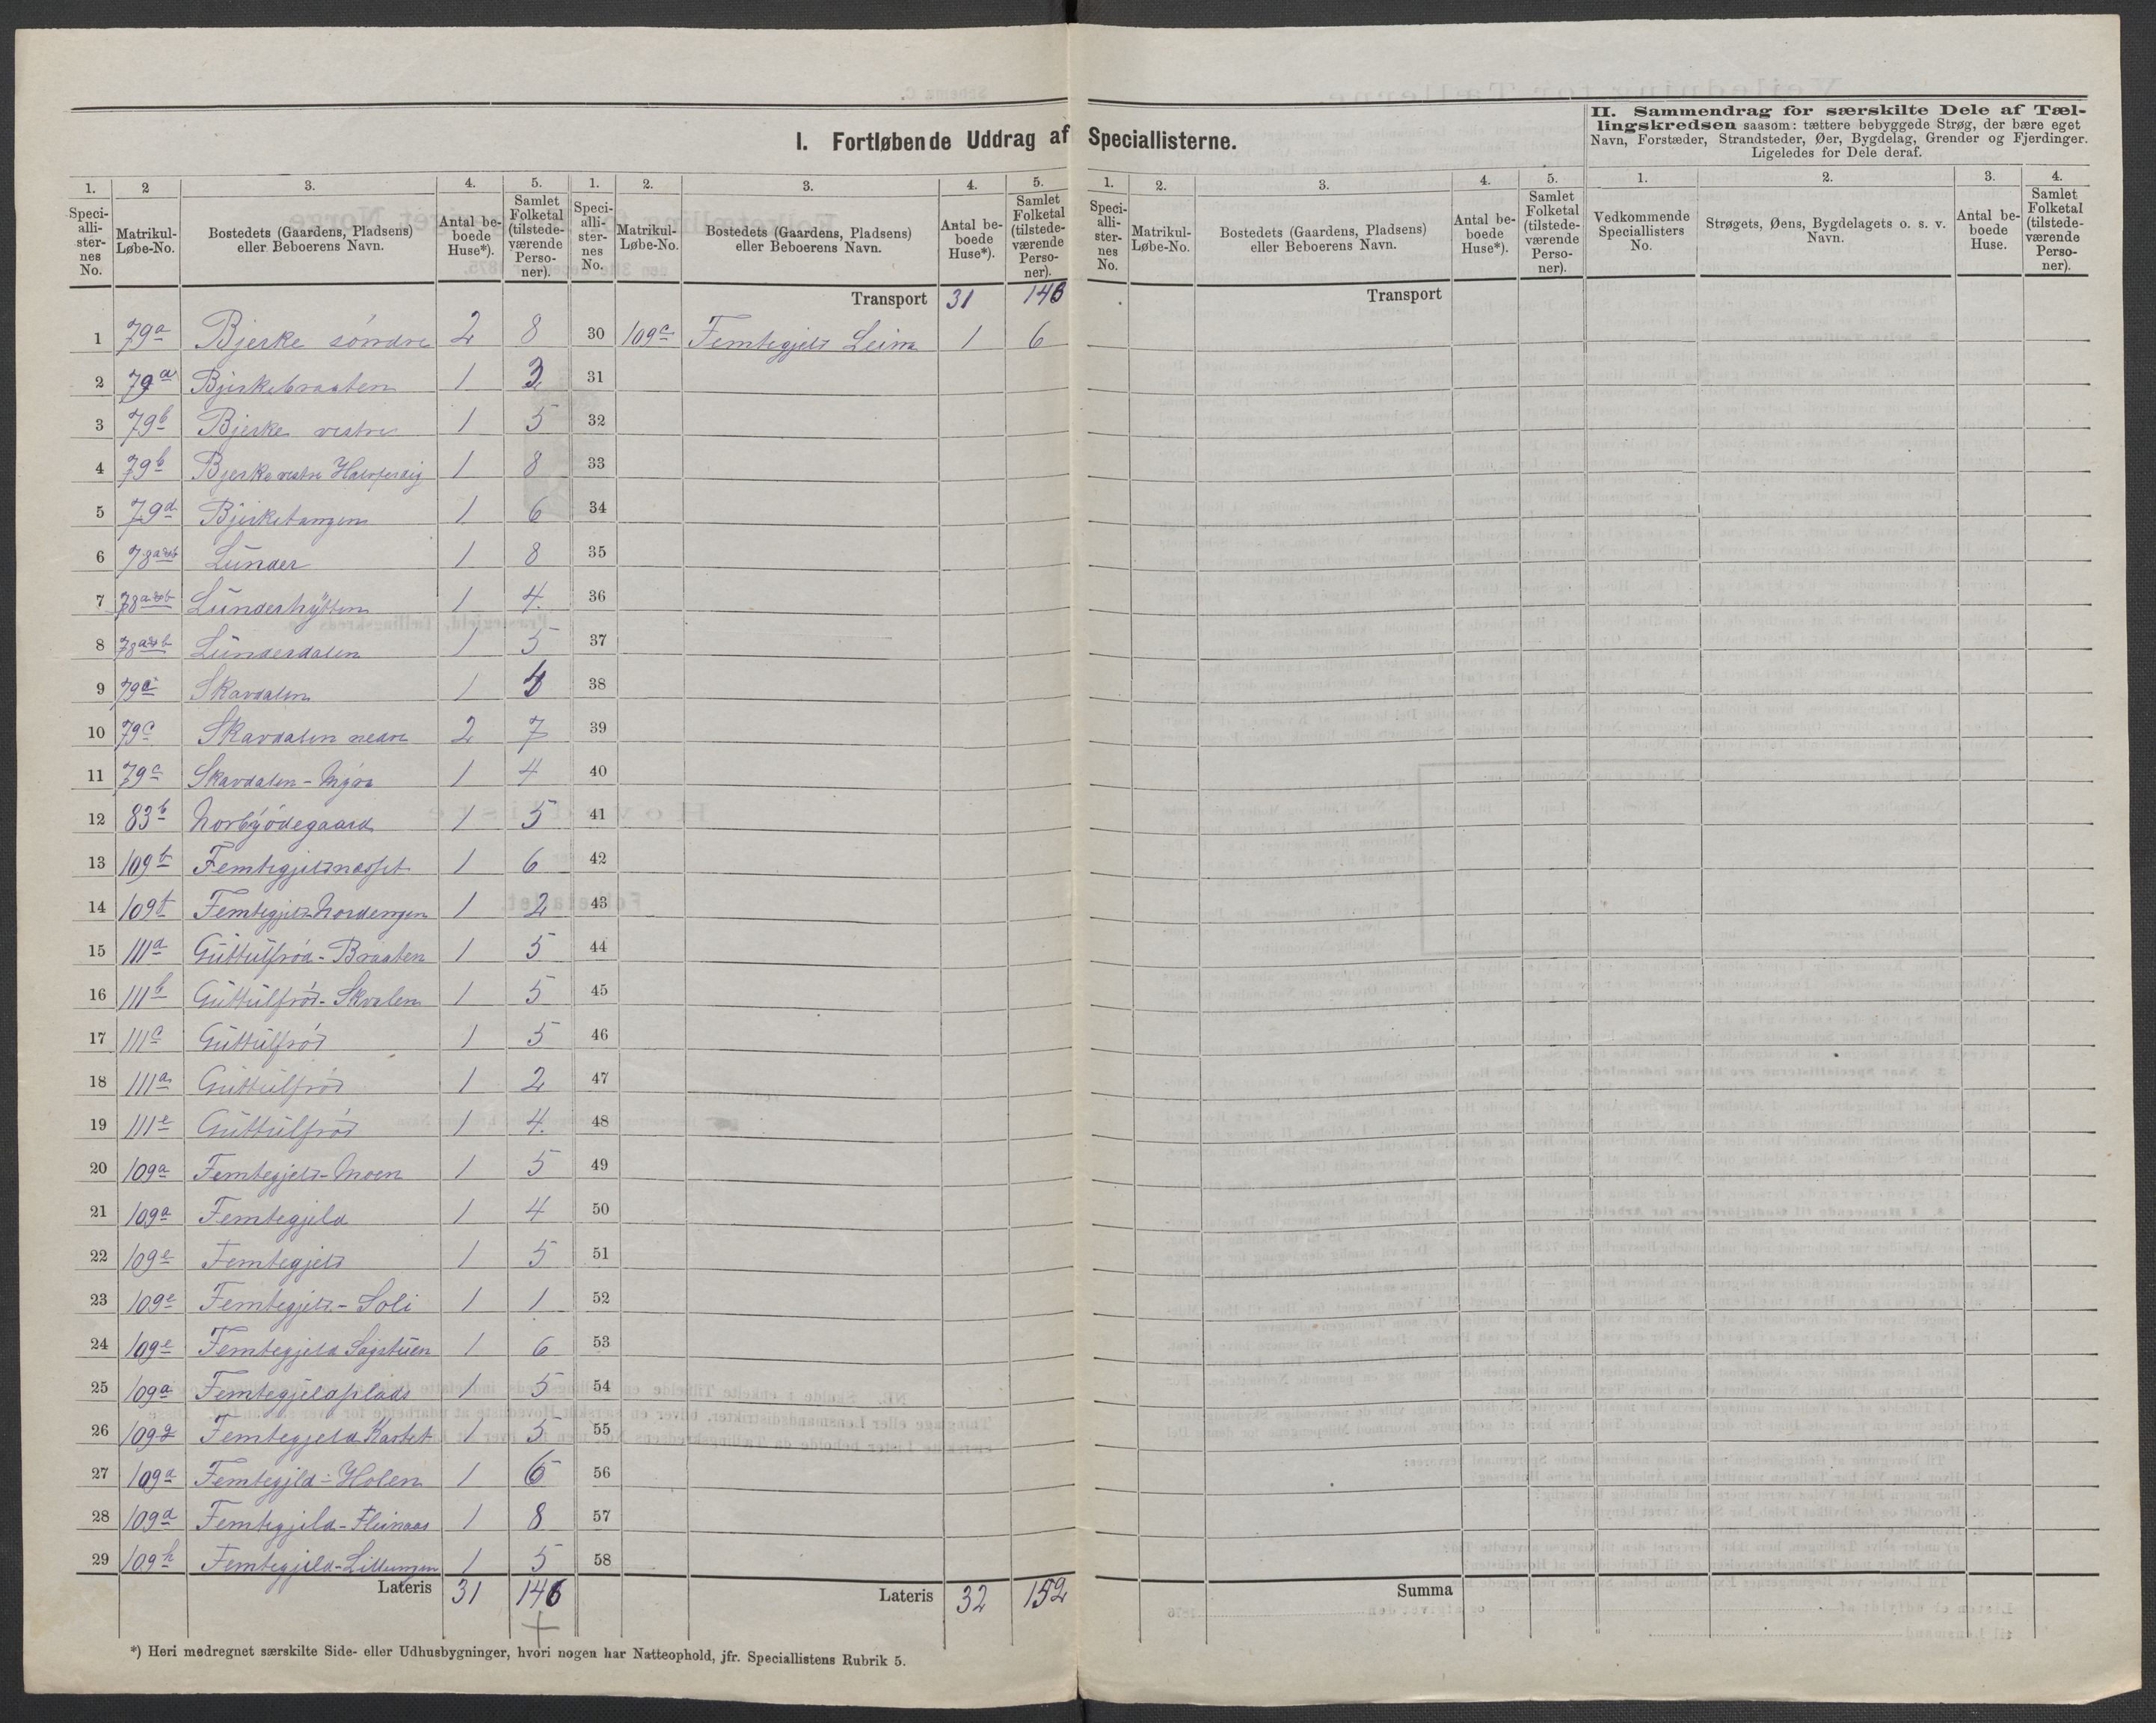 I. Fortløbende Uddrag af Speciallisterne.
II. Sammendrag for særskilte Dele af Tællingskredsen saasom: tættere bebyggede Strøg, der bære eget
Navn, Forstæder, Strandsteder, Øer, Bygdelag, Grender og Fjerdinger.
Ligeledes for Dele deraf.
1. 2 3. 4. 5. 1. 2. 3. 4. 5. 1. 2. 3. 4. 5. 1. 2. 3. 4.
Speciallisternes No. Matrikul-Løbe-No. Bostedets (Gaardens, Pladsens) eller Beboerens Navn. Antal beboede Huse*). Samlet Folketal (tilstedeværende Personer).
Speciallisternes No. Matrikul-Løbe-No. Bostedets (Gaardens, Pladsens) eller Beboerens Navn. Antal beboede Huse*). Samlet Folketal (tilstedeværende Personer).
Speciallisternes No. Matrikul-Løbe-No. Bostedets (Gaardens, Pladsens) eller Beboerens Navn. Antal beboede Huse*). Samlet Folketal (tilstedeværende Personer).
Vedkommende Speciallisters No. Strøgets, Øens, Bygdelagets o. s. v. Navn. Antal beboede Huse. Samlet Folketal (tilstedeværende Personer).
Transport 31 146 Transport
1 79a Bjerke söndre 2 8 30 109c Femtegjeld Leim 1 6
2 79a Bjerkebraaten 1 3 31
3 79b Bjerke vestre 1 5 32
4 79b Bjerke vestre 1 8 33
5 79d Bjerketangen 1 6 34
6 78a&b Lunder 1 8 35
7 78a&b Lunderhytten 1 4. 36
8 78a&b Lunderdalen 1 5 37
9 79c Skavdalen 1 4 38
10 79c Skavdalen nedre 2 7 39
11 79c Skavdalen-Myra 1 4 40
12 83b Norbyödegaard 1 5 41
13 109b Femtegjeldnæsset 1 6 42
14 109b Femtegjeld Nordengen 1 2 43
15 111a Guttulfröd-Braaten 1 5 44
16 111b Guttulfröd-Skvalen 1 5 45
17 111c Guttulfröd 1 5 46
18 111a Guttulfröd 1 2 47
19 111e Guttulfröd 1 4. 48
20 109a Femtegjeld-Moen 1 5 49
21 109a Femtegjeld 1 4 50
22 109e Femtegjeld 1 5 51
23 109e Femtegjeld-Soli 1 1 52
24 109e Femtegjeld Sagstuen 1 6 53
25 109a Femtegjeldplads 1 5 54
26 109 Femtegjeld 1 5 55
27 109a Femtegjld-Holen 1 6 56
28 109d Femtegjeld- 1 8 57
29 109h Femtegjeld-Lillengen 1 5 58
Lateris 31 146 Lateris 32 152 Summa
*) Heri medregnet særskilte Side- eller Udhusbygninger, hvori nogen har Natteophold, jfr. Speciallistens Rubrik 5.